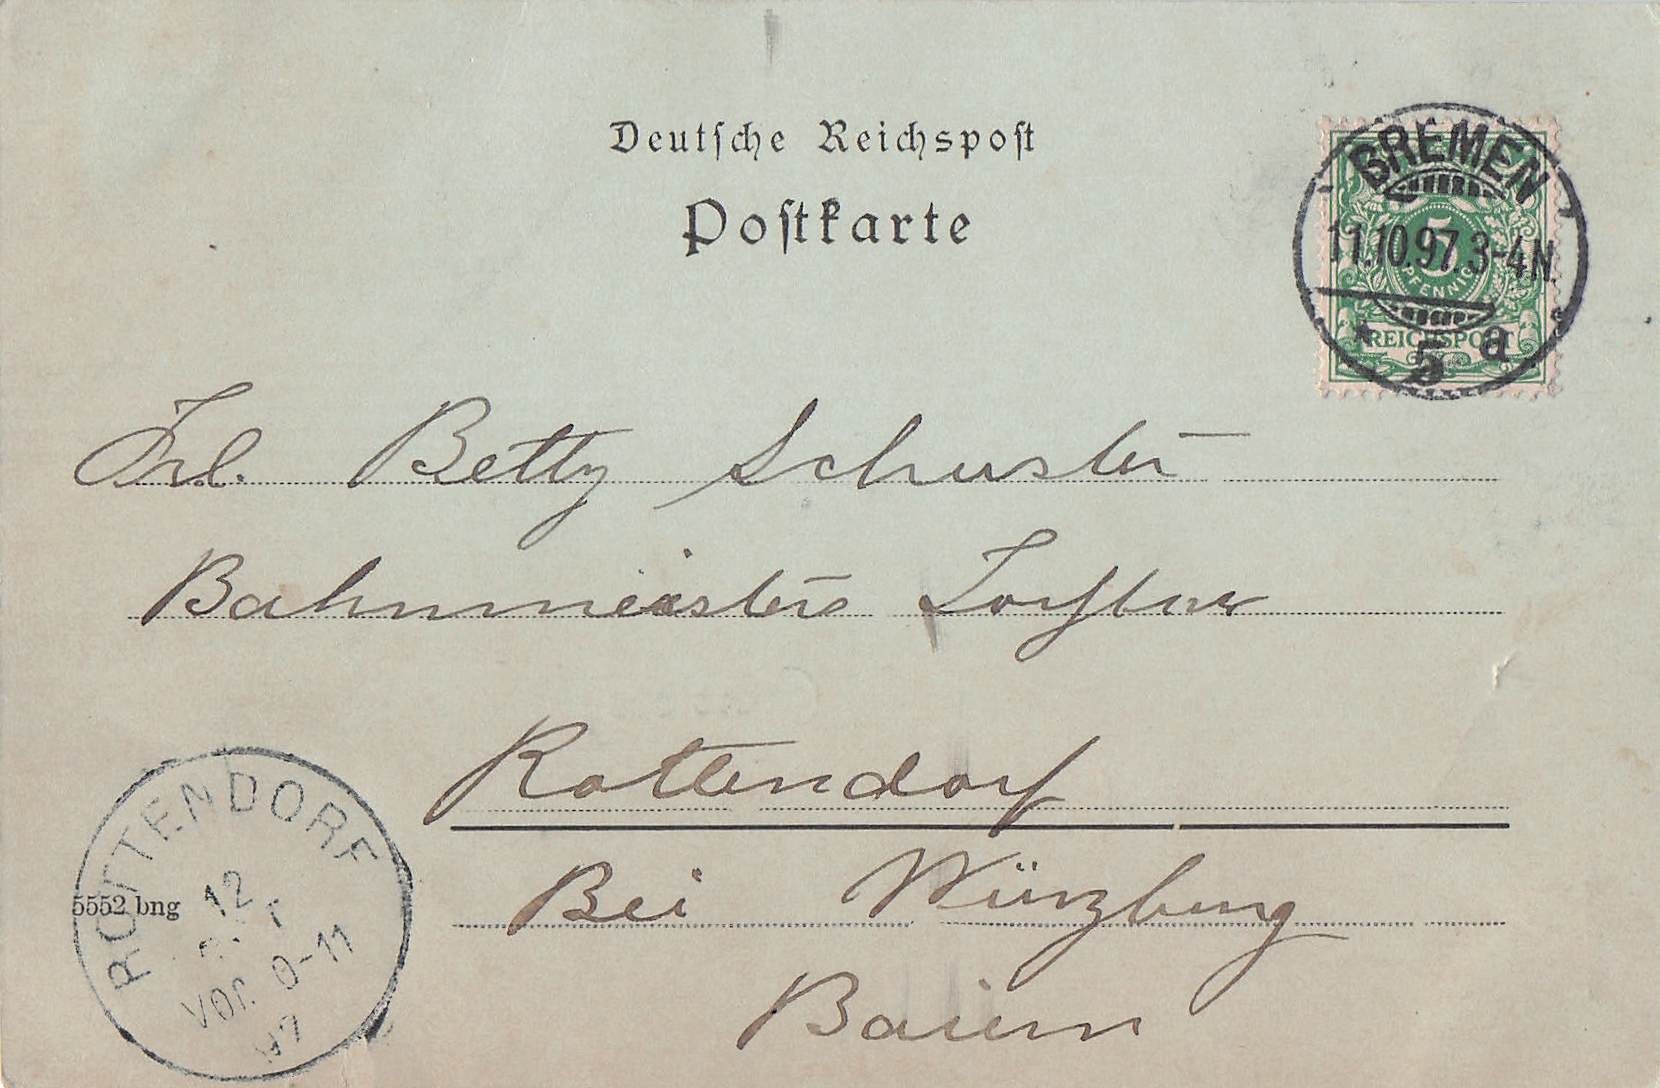 Deutsche Reichspost
Postkarte
BREMEN
11.10.97.3-4N.
* 5 a
5
PFENNIG
REICHSPOST
Frl. Betty Schuster
Bahnmeisters
Rottendorf
Bei Würzburg
Baiern
5552 bng
ROTTENDORF
12
OCT
VOR. 10-11
97